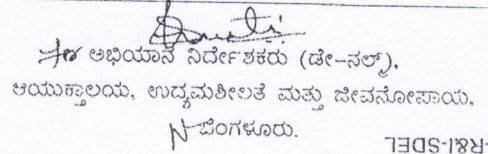 ಅಭಿಯಾನ ನಿರ್ದೇಶಕರು (ಡೇ-ನಲ್ಮ್),
ಆಯುಕ್ತಾಲಯ, ಉದ್ಯಮಶೀಲತೆ ಮತ್ತು ಜೀವನೋಪಾಯ,
ಬೆಂಗಳೂರು.
R&I-SDEL